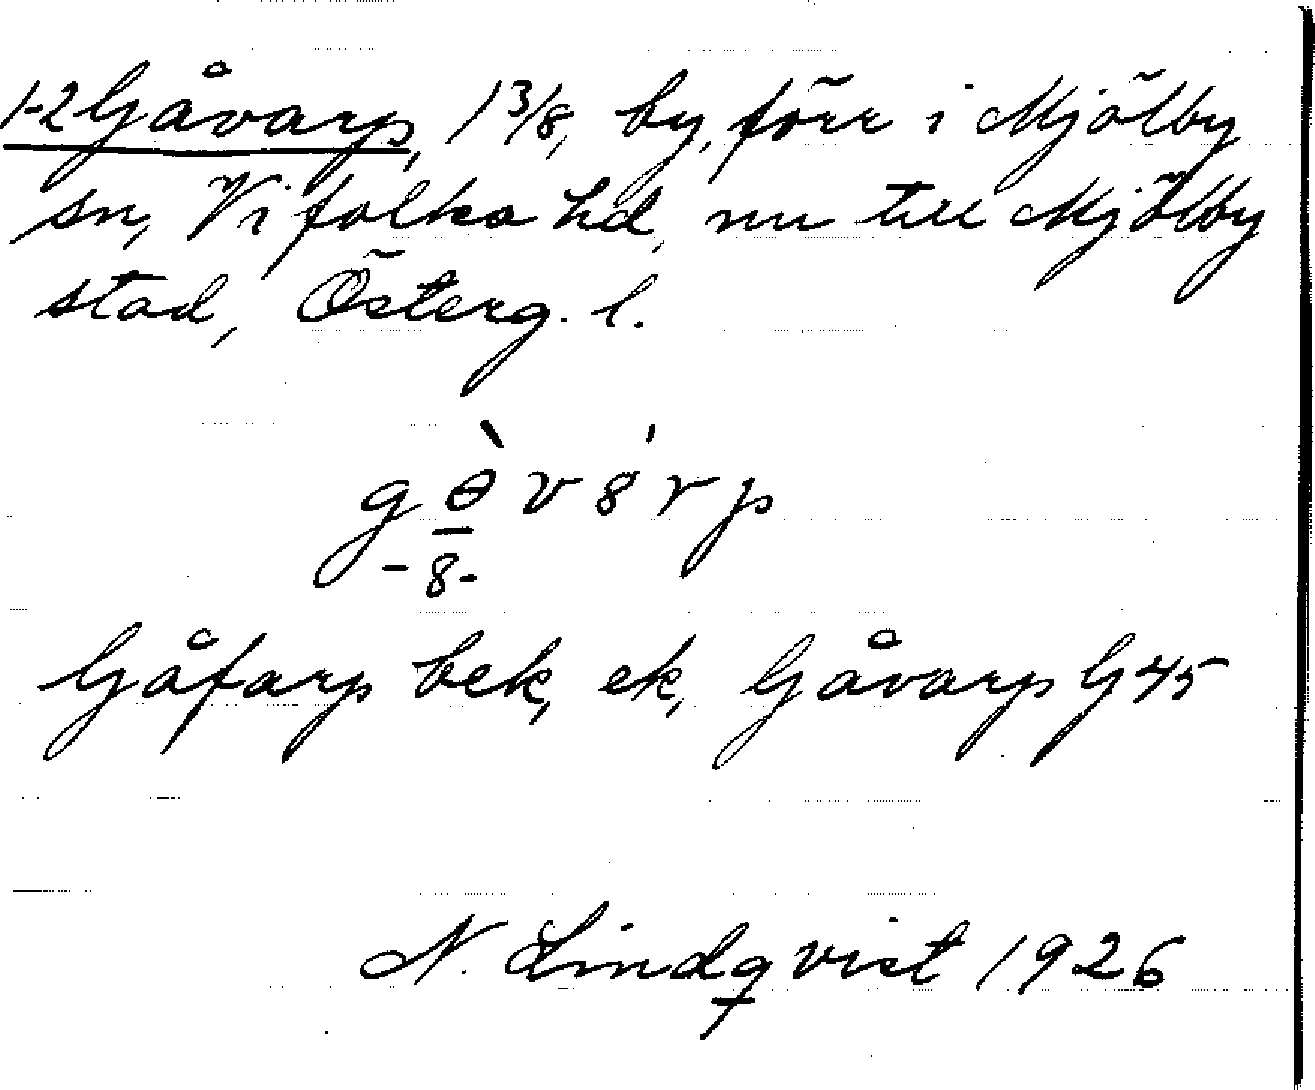 1-2 Gåvarp, 1 3/8, by, förr i Mjölby
sn, Vifolka hd, nu till Mjölby
stad, Österg. l.
gɵ̀v8̍rp
-8-
Gåfarp bek, ek, Gåvarp G 45
N. Lindqvist 1926